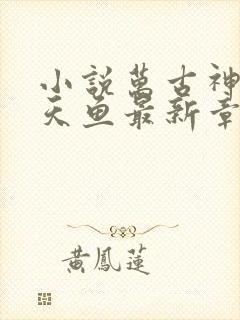 小說萬古神
天魚最新章
黃鳳蓮